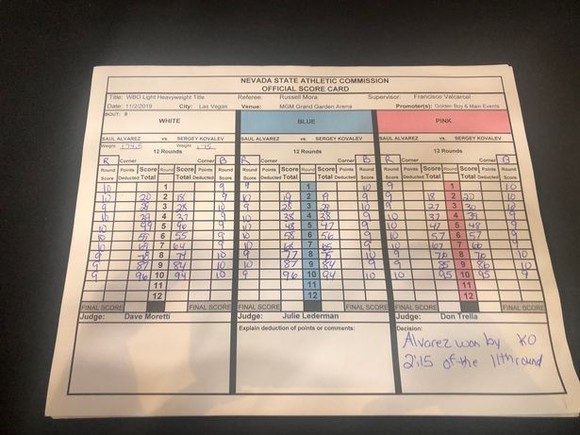 NEVADA STATE ATHLETIC COMMISSION
OFFICIAL SCORE CARD
Title: WBO Light Heavyweight Title Referee: Russell Mora Supervisor: Francisco Valcarcel
Date: 11/2/2019 City: Las Vegas Venue: MGM Grand Garden Arena Promoter(s): Golden Boy & Main Events
BOUT: 8
WHITE BLUE PINK
SAUL ALVAREZ vs. SERGEY KOVALEV SAUL ALVAREZ vs. SERGEY KOVALEV SAUL ALVAREZ vs. SERGEY KOVALEV
Weight Weight
12 Rounds 12 Rounds 12 Rounds
R Corner Corner B R Corner Corner B R Corner Corner B
Round Points Score Round Score Points Round Round Points Score Round Score Points Round Round Points Score Round Score Points Round
Score Deducted Total Total Deducted Score Score Deducted Total Total Deducted Score Score Deducted Total Total Deducted Score
10 1 9 9 1 10 9 1 10
10 20 2 18 9 10 19 2 19 9 9 18 2 20 10
3 3 9 27 3 30 10
4 37 10 38 4 38 9 10 37 4 39 9
5 46 10 48 5 47 9 10 47 5 48 9
6 55 9 10 58 6 56 9 10 57 6 57 9
7 64 9 10 68 7 65 9 10 67 7 66 9
9 8 9 77 8 75 10 9 76 8 76 10
9 87 9 84 10 10 87 9 84 9 9 85 9 86 10
9 96 10 94 10 9 96 10 94 10 10 95 10 95 9
11 11 11
12 12 12
FINAL SCORE FINAL SCORE FINAL SCORE FINAL SCORE FINAL SCORE FINAL SCORE
Judge: Dave Moretti Judge: Julie Lederman Judge: Don Trella
Explain deduction of points or comments: Decision:
Alvarez won by KO
2:15 of the 11th round